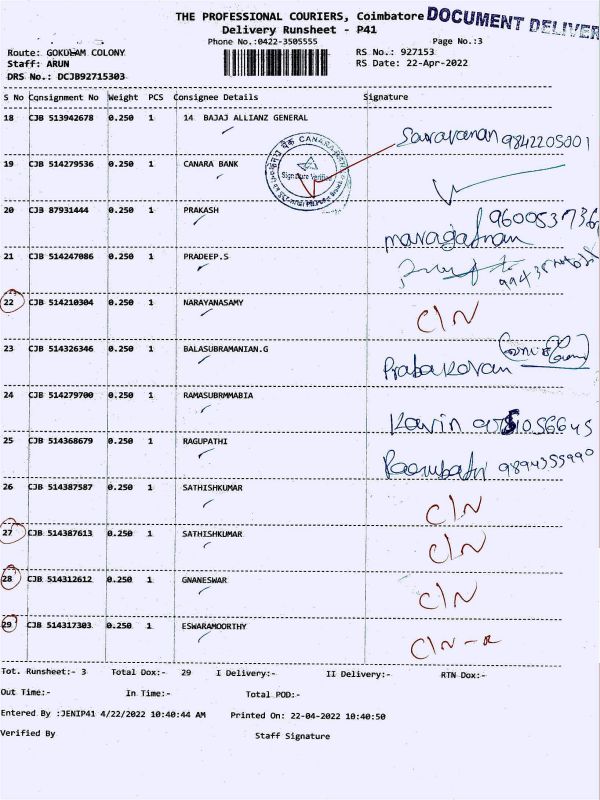 THE PROFESSIONAL COURIERS, Coimbatore DOCUMENT DELIVER
Delivery Runsheet - P41
Phone No.:0422-3505555 Page No.:3
Route: GOKULAM COLONY RS No.: 927153
Staff: ARUN RS Date: 22-Apr-2022
DRS No.: DCJB92715303
S No Consignment No Weight PCS Consignee Details Signature
18 CJB 513942678 0.250 1 14 BAJAJ ALLIANZ GENERAL
Saravanan 9842205001
19 CJB 514279536 0.250 1 CANARA BANK
CANARA BANK
Signature Verified
20 CJB 87931444 0.250 1 PRAKASH
maragatham
21 CJB 514247086 0.250 1 PRADEEP.S
22 CJB 514210304 0.250 1 NARAYANASAMY C/N
23 CJB 514326346 0.250 1 BALASUBRAMANIAN.G
Prabakaran
24 CJB 514279700 0.250 1 RAMASUBRMMABIA
Kavin
25 CJB 514368679 0.250 1 RAGUPATHI
26 CJB 514387587 0.250 1 SATHISHKUMAR C/N
27 CJB 514387613 0.250 1 SATHISHKUMAR C/N
28 CJB 514312612 0.250 1 GNANESWAR C/N
29 CJB 514317303 0.250 1 ESWARAMOORTHY C/N-R
Tot. Runsheet:- 3 Total Dox:- 29 I Delivery:- II Delivery:- RTN Dox:-
Out Time:- In Time:- Total POD:-
Entered By :JENIP41 4/22/2022 10:40:44 AM Printed On: 22-04-2022 10:40:50
Verified By Staff Signature